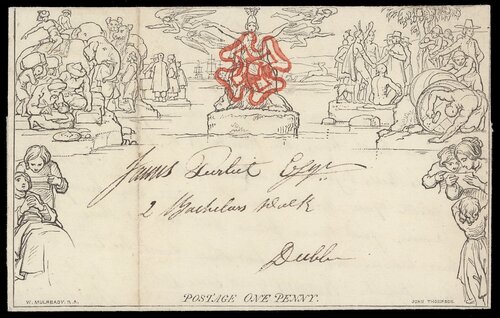 James Esqr
2 Bachelors Walk
Dublin
POSTAGE ONE PENNY.
W. MULREADY. R. A.
JOHN THOMPSON.